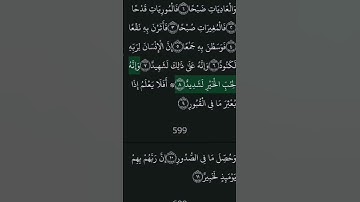 وَالْعَادِيَاتِ ضَبْحًا ۝١ فَالْمُورِيَاتِ قَدْحًا
۝٢ فَالْمُغِيرَاتِ صُبْحًا ۝٣ فَأَثَرْنَ بِهِ نَقْعًا
۝٤ فَوَسَطْنَ بِهِ جَمْعًا ۝٥ إِنَّ الْإِنْسَانَ لِرَبِّهِ
لَكَنُودٌ ۝٦ وَإِنَّهُ عَلَىٰ ذَٰلِكَ لَشَهِيدٌ ۝٧ وَإِنَّهُ
لِحُبِّ الْخَيْرِ لَشَدِيدٌ ۝٨ ۞ أَفَلَا يَعْلَمُ إِذَا
بُعْثِرَ مَا فِي الْقُبُورِ ۝٩
599
وَحُصِّلَ مَا فِي الصُّدُورِ ۝١٠ إِنَّ رَبَّهُمْ بِهِمْ
يَوْمَئِذٍ لَخَبِيرٌ ۝١١